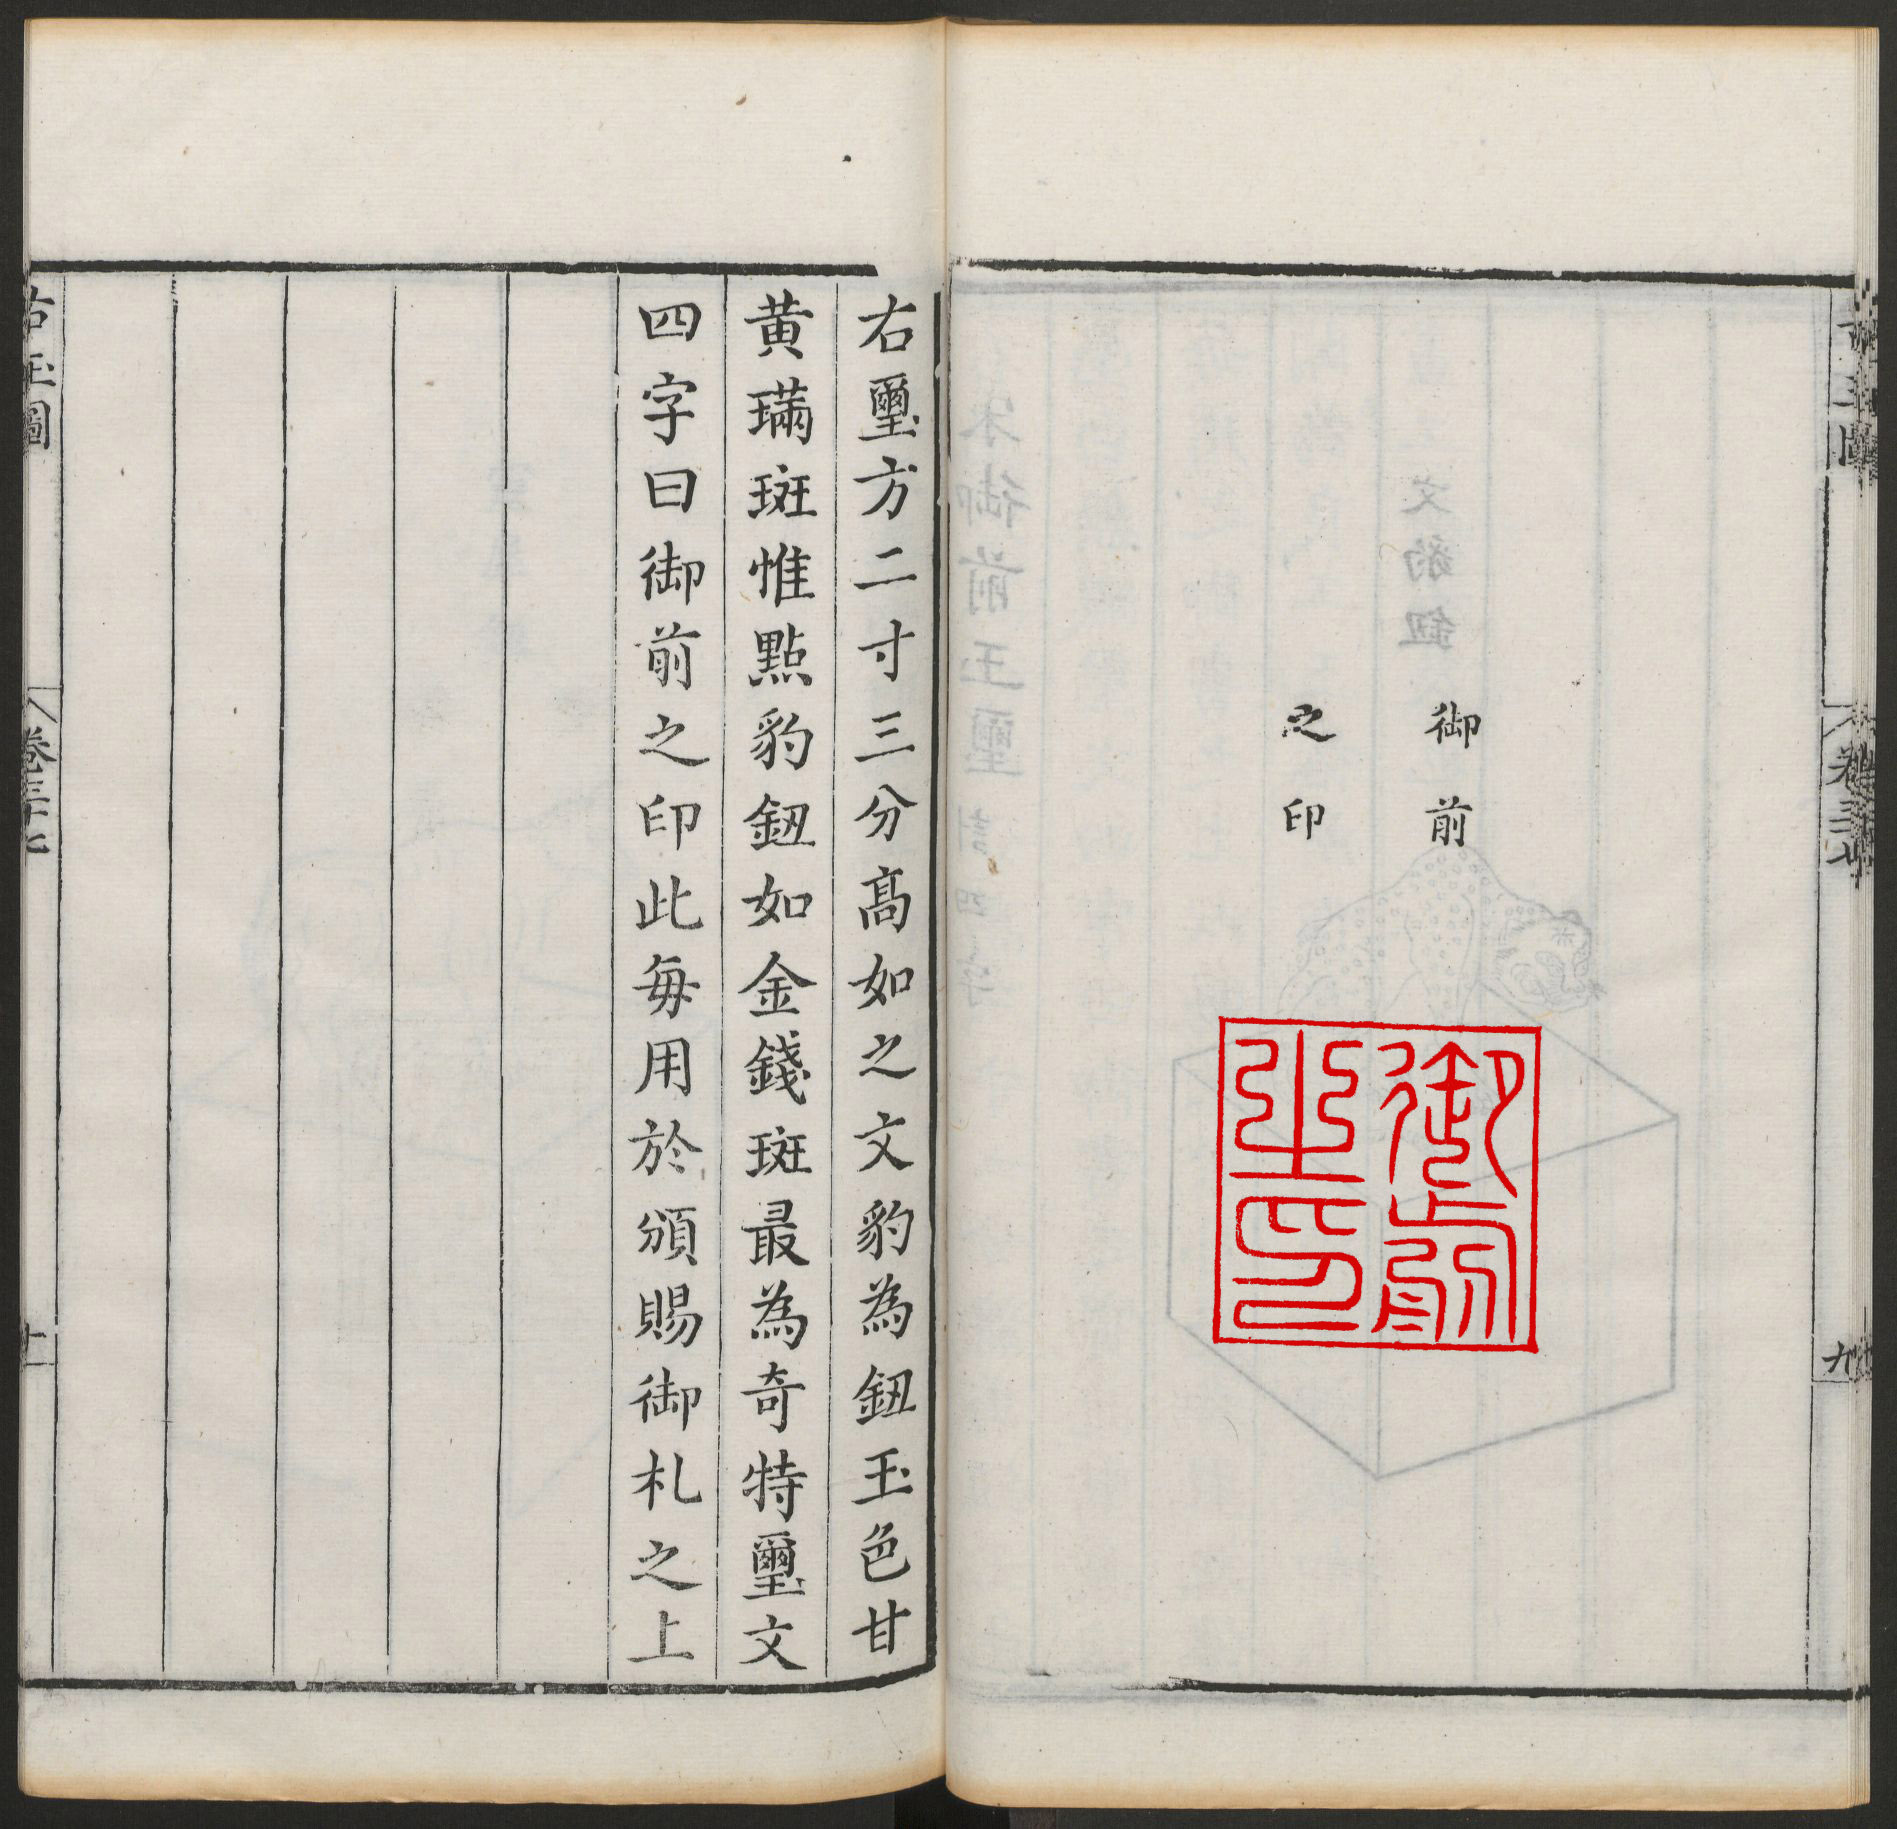 御前
之印
御前
之印
九
右璽方二寸三分高如之文豹為鈕玉色甘
黄璊斑惟點豹鈕如金錢斑最為奇特璽文
四字曰御前之印此每用於頒賜御札之上
古玉圖
卷三十七
十